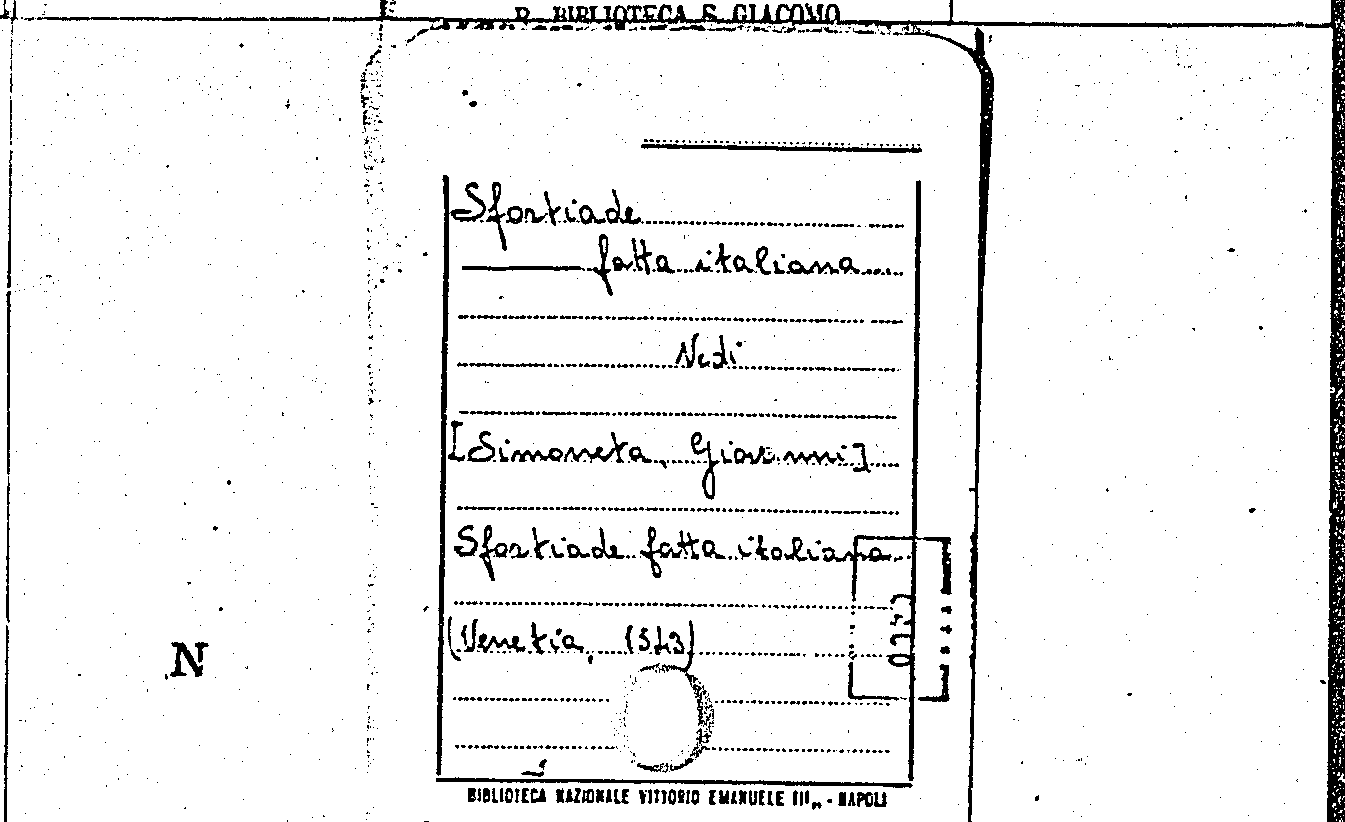 R. BIBLIOTECA S. GIACOMO
Sfortiade
fatta italiana
Vedi
[Simoneta, Giovanni]
Sfortiade fatta italiana
(Venetia, 1543)
N
BIBLIOTECA NAZIONALE VITTORIO EMANUELE III„ - NAPOLI